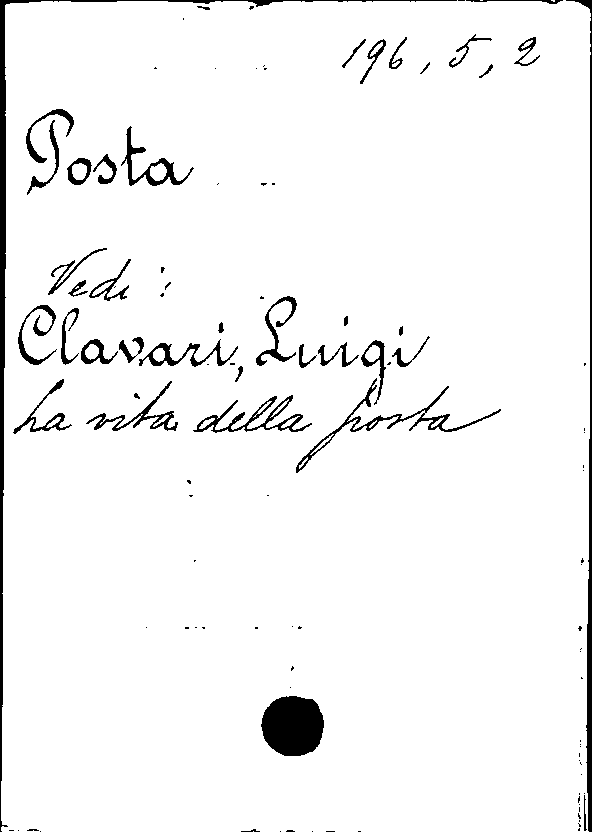 196, 5, 2
Posta
Vedi:
Clavari, Luigi
La vita della posta